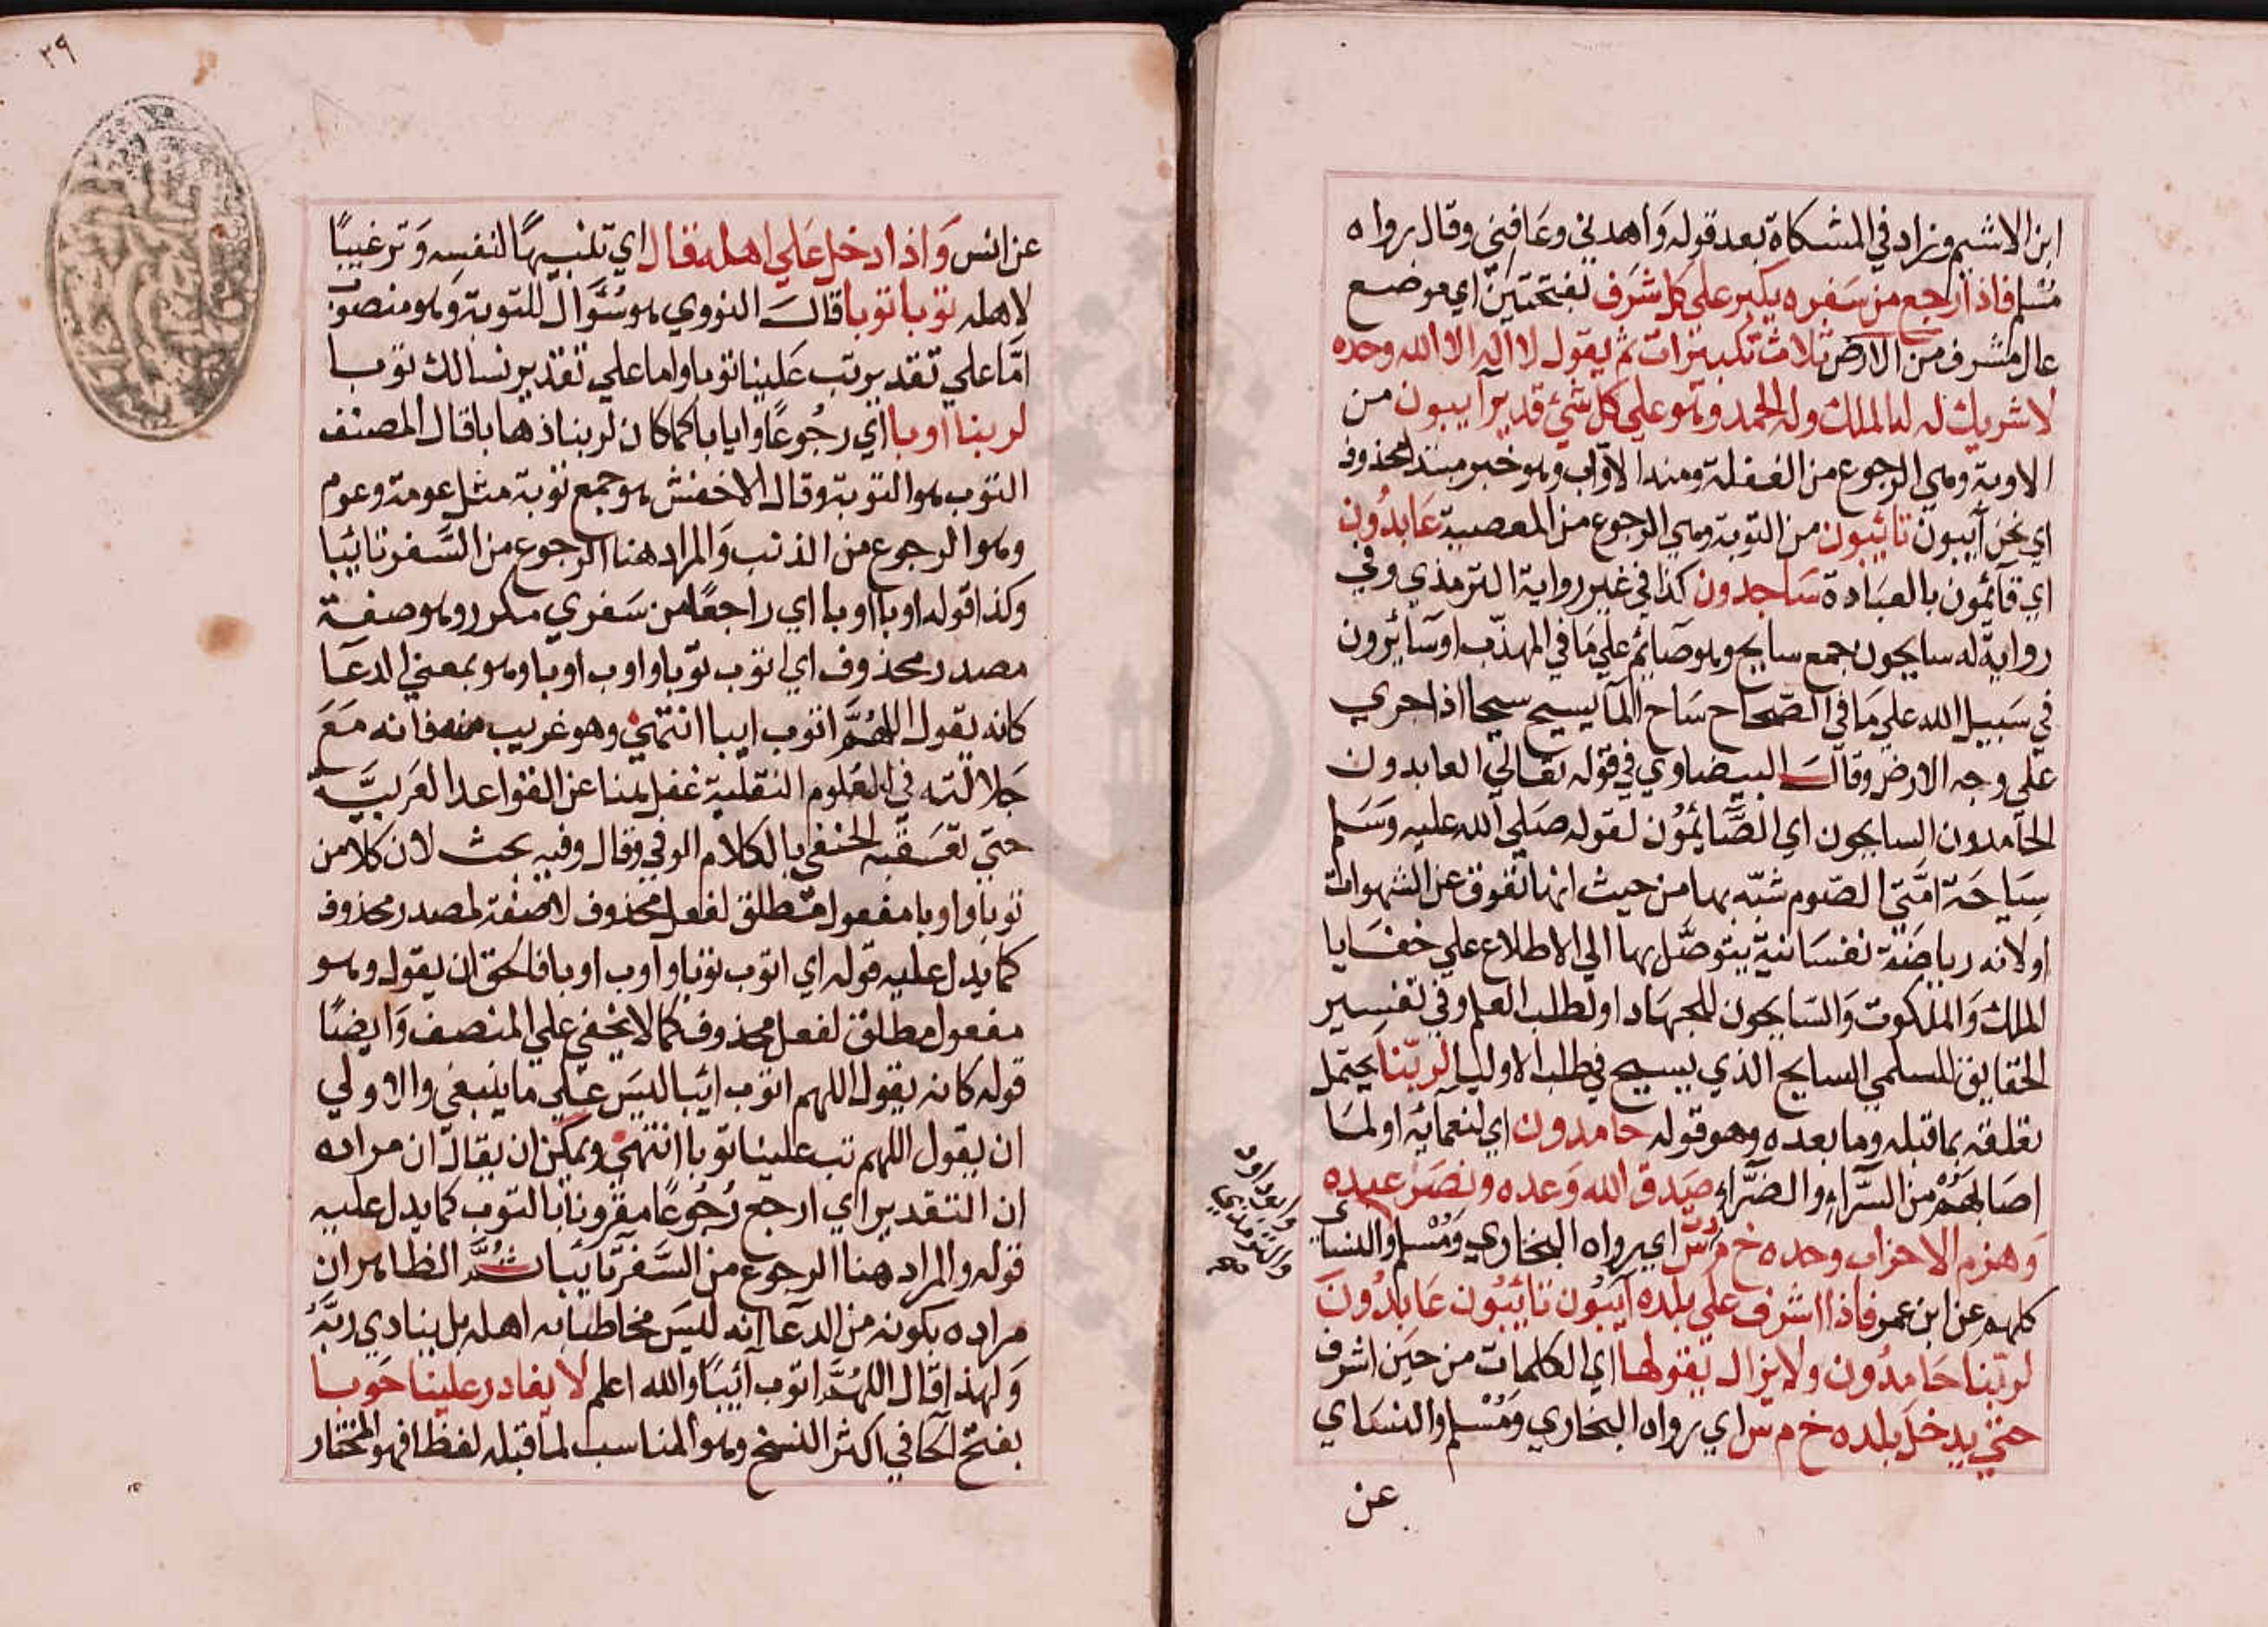 ابن الاشيم وزاد في المشكاة بعد قوله وَاهدني وعَافني وقال رواه
مسْلم فاذا رجع من سَفره يكبر على كل شَرف بفتحتين اي موضع
عال مشرف من الارض ثلاث تكبيرات ثم يقول لا اله الا الله وحده
لا شريك له له الملك وله الحمد وهو على كل شئ قدير آيبون من
الاوبة وهي الرجوع من الغفلة ومنه الاوّاب وهو خبر مبتدا محذوف
اي نحن آيبون تائبون من التوبة وهي الرجوع من المعصية عَابدُون
اي قائمون بالعبَادة سَاجدون كذا في غير رواية الترمذي وفي
رواية له سايحون جمع سايح وهو صَائم على مَا في المهذّب او سَائرون
في سَبيل الله على مَا في الصّحاح سَاح المآ يسيح سيحا اذا جري
على وجه الارض وقال البيضاوي في قوله تعالى العابدون
الحَامدون السايحون اي الصَّائمُون لقوله صَلى الله عليه وَسَلم
سِيَاحَة امّتي الصّوم شبّه بها من حيث انها تعوق عن الشهوات
او لانه رياضَة نفسَانية يتوصَّل بها الى الاطلاع على خفَايا
الملك وَالملكوت وَالسّايحون للجهَاد او لطلب العلم وفي تفسِير
الحقايق للسلمي السايح الذي يسيح في طلب الاوليا لربّنا يحتمل
تعلقه بما قبله وما بعده وهو قوله حَامدون اي لنعمآئه او لمَا
اصَابهُمْ من السَّرآءِ والضرَّاءِ صَدق الله وَعده ونصَر عبده
وَهزم الاحزاب وحده خ م د ت س اي رواه البخاري وَمُسْلم والنسَاي
وابو داود
والترمذي
صح
كلهم عن ابن عمر فاذا اشرف على بلده آيبُون تائبُون عَابدُونَ
لربّنا حَامدُون ولا يزال يقولها اي الكلمات من حين اشرف
حتي يدخل بلده خ م س اي رواه البخاري وَمُسْلم والنسَاي
عن
٢٩
عن انس وَاذا دخل عَلى اهله قال اي تنبيهًا لنفسِه وَترغيبًا
لاهله توبا توبا قال النووي هو سُؤَال للتوبة وهو منصوب
امَّا على تقدير تب عَلينا توبا واما على تقدير نسالك توبا
لربنا اوبا اي رجُوعًا وايابا كما كان لربنا ذهابا قال المصنف
التوب هو التوبة وقال الاخفش هو جمع توبة مثل عومة وعوم
وهو الرجوع من الذنب وَالمراد هنا الرجوع من السَّفر تائبا
وكذا قوله اوبا اوبا اي راجعًا من سَفري مكرر وهو صفة
مصدر محذوف اي اتوب توبا واوب اوبا وهو بمعني الدعَا
كانه يقول اللهُمَّ اتوب ايبا انتهي وهو غريب منه فانه مَعَ
جَلالته في العلوم النقلية غفل هنا عن القواعد العَربيَّة
حتي تعسَقبه الحنفي بالكلام الوفي وقال وفيه بحث لان كلا من
توبا واوبا مفعول مطلق لفعل محذوف لا صفة لمصدر محذوف
كما يدل عليه قوله اي اتوب توبا وآوب اوبا فالحق ان يقول وهو
مفعول مطلق لفعل محذوف كما لا يخفي على المنصف وَايضًا
قوله كانه يقول اللهم اتوب ائبا ليسَ عَلى ما ينبغي والاولي
ان يقول اللهم تب علينا توبا انتهي ويمكن ان يقال ان مراده
ان التقدير اي ارجع رُجُوعًا مقرونا بالتوب كما يدل عليه
قوله والمراد هنا الرجوع من السَّفر تائبا ثُمَّ الظاهر ان
مراده بكونه من الدعآ انه ليسَ مخاطبا به اهله بل ينادي ربَّهُ
وَلهذا قال اللهُمَّ اتوب آئبًا والله اعلم لا يغادر علينا حَوبا
بفتح الحآ في اكثر النسخ وهو المناسب لما قبله لفظا فهو المختار